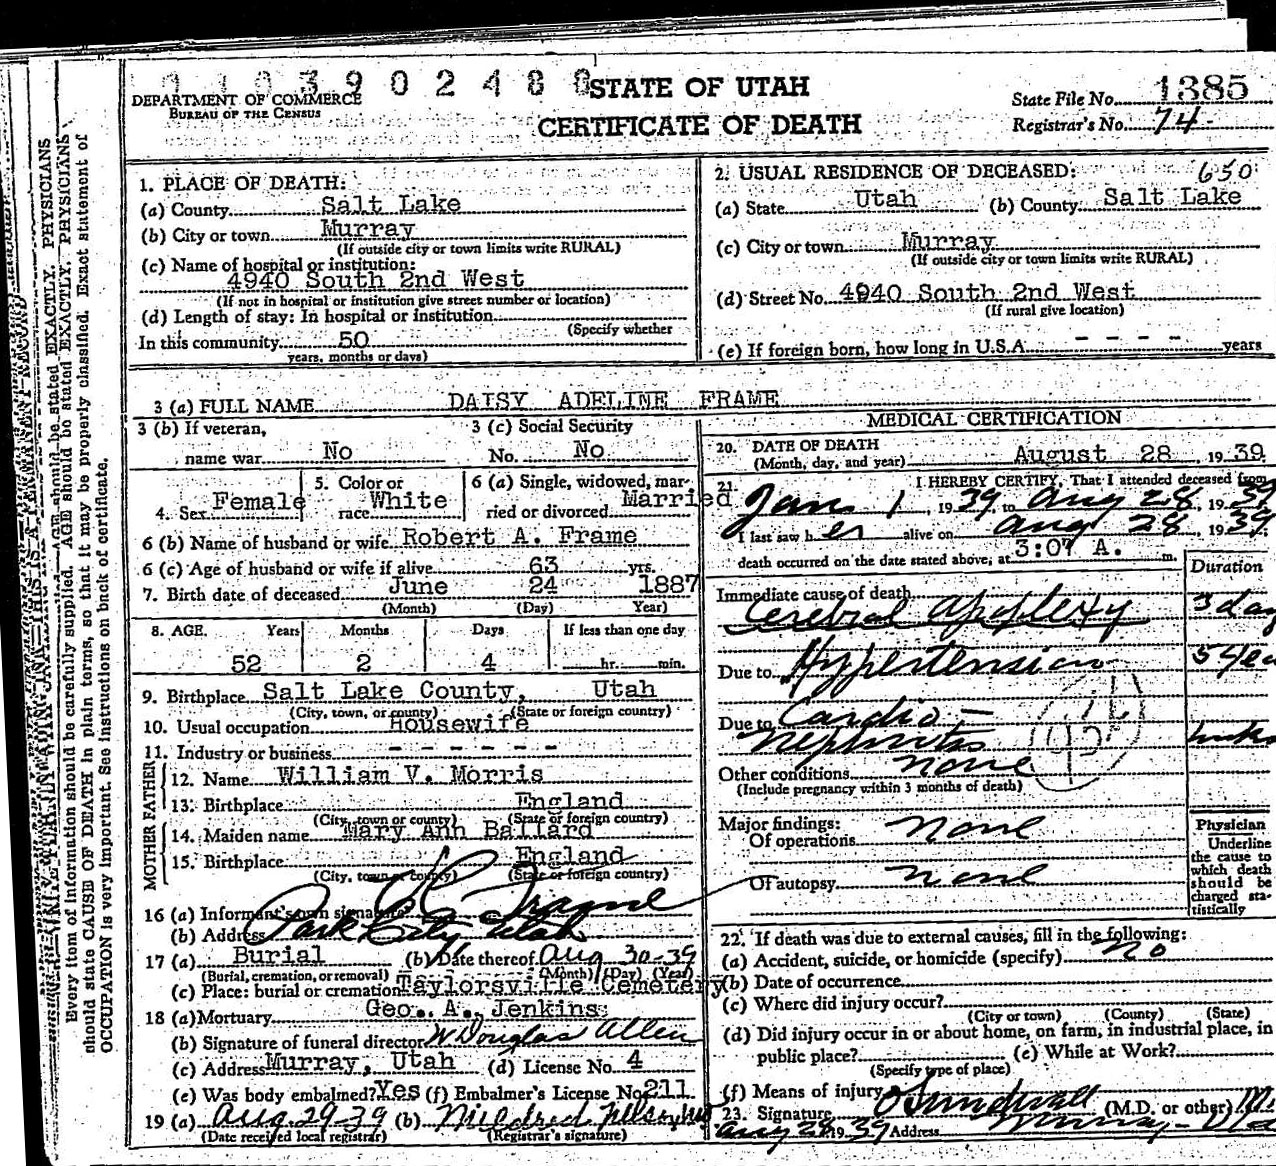 1 1 0 3 9 0 2 4 8 8
STATE OF UTAH
DEPARTMENT OF COMMERCE
BUREAU OF THE CENSUS
CERTIFICATE OF DEATH
State File No. 1385
Registrar's No. 74
1. PLACE OF DEATH:
(a) County Salt Lake
(b) City or town Murray
(If outside city or town limits write RURAL)
(c) Name of hospital or institution:
4940 South 2nd West
(If not in hospital or institution give street number or location)
(d) Length of stay: In hospital or institution
(Specify whether
In this community 50
years, months or days)
2. USUAL RESIDENCE OF DECEASED: 650
(a) State Utah (b) County Salt Lake
(c) City or town Murray
(If outside city or town limits write RURAL)
(d) Street No. 4940 South 2nd West
(If rural give location)
(e) If foreign born, how long in U.S.A. - - - - years
3 (a) FULL NAME DAISY ADELINE FRAME
3 (b) If veteran, 3 (c) Social Security
name war No No. No
4. Sex Female 5. Color or race White 6 (a) Single, widowed, married or divorced Married
6 (b) Name of husband or wife Robert A. Frame
6 (c) Age of husband or wife if alive 63 yrs.
7. Birth date of deceased June 24 1887
(Month) (Day) Year)
8. AGE. Years Months Days If less than one day
52 2 4 hr. min.
9. Birthplace Salt Lake County, Utah
(City, town, or county) (State or foreign country)
10. Usual occupation Housewife
11. Industry or business - - - - - -
FATHER
12. Name William V. Morris
13. Birthplace England
(City, town or county) (State or foreign country)
MOTHER
14. Maiden name Mary Ann Ballard
15. Birthplace England
(City, town or county) (State or foreign country)
16 (a) Informant's own signature Frame
(b) Address Park City Utah
17 (a) Burial (b) Date thereof Aug 30-39
(Burial, cremation, or removal) (Month) (Day) (Year)
(c) Place: burial or cremation Taylorsville Cemetery
18 (a) Mortuary Geo. A. Jenkins
(b) Signature of funeral director W Douglas Allen
(c) Address Murray, Utah (d) License No. 4
(e) Was body embalmed? Yes (f) Embalmer's License No 211
19 (a) Aug. 29-39 (b) Mildred
(Date received local registrar) (Registrar's signature)
MEDICAL CERTIFICATION
20. DATE OF DEATH
(Month, day, and year) August 28, 1939
21. I HEREBY CERTIFY, That I attended deceased from
Jan 1, 1939 to Aug 28, 1939
I last saw her alive on Aug 28, 1939
death occurred on the date stated above, at 3:07 A. m.
Duration
Immediate cause of death
Cerebral apoplexy 3 day
Due to Hypertension 5 yea
Due to Cardio -
Nephritis
Other conditions none
(Include pregnancy within 3 months of death)
Major findings:
Of operations none
Of autopsy none
Physician
Underline
the cause to
which death
should be
charged sta-
tistically
22. If death was due to external causes, fill in the following:
(a) Accident, suicide, or homicide (specify) no
(b) Date of occurrence
(c) Where did injury occur?
(City or town) (County) (State)
(d) Did injury occur in or about home, on farm, in industrial place, in
public place? (e) While at Work?
(Specify type of place)
(f) Means of injury
23. Signature Sundwall (M.D. or other)
Aug 28 1939 Address Murray - Utah
Every item of information should be carefully supplied. AGE should be stated EXACTLY. PHYSICIANS
should state CAUSE OF DEATH in plain terms, so that it may be properly classified. Exact statement of
OCCUPATION is very important. See instructions on back of certificate.